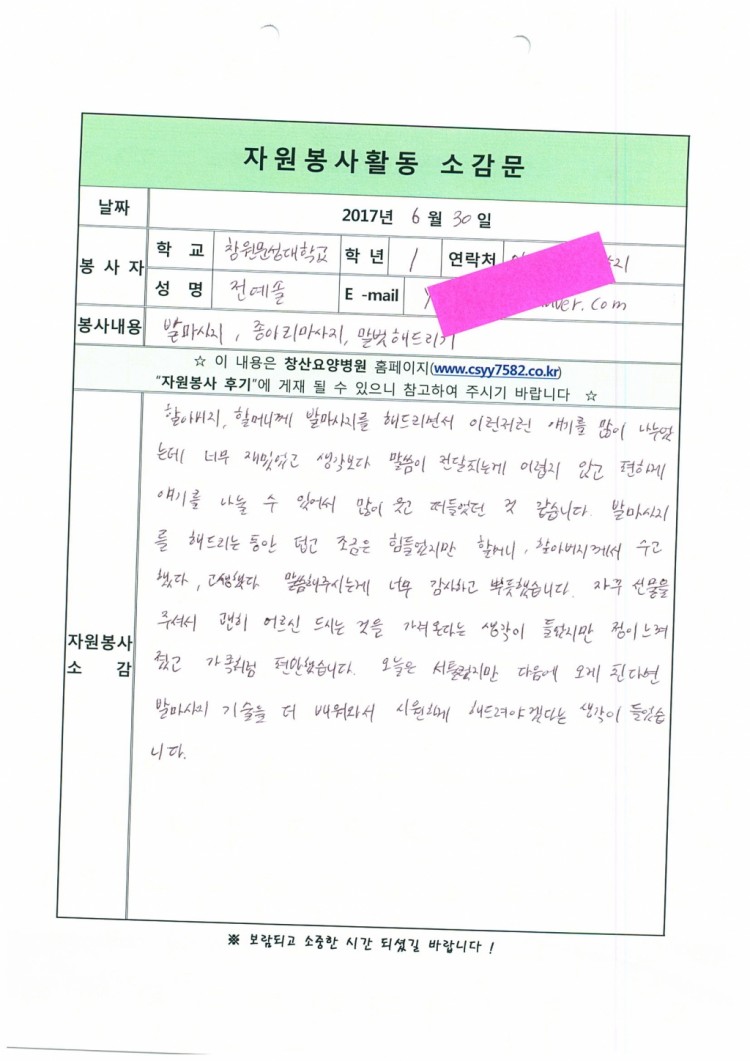 자원봉사활동 소감문
날짜 2017년 6월 30일
봉사자 학교 창원문성대학교 학년 1 연락처
성명 전예솔 E -mail ver.com
봉사내용 발마사지, 종아리마사지, 말벗해드리기
☆ 이 내용은 창산요양병원 홈페이지(www.csyy7582.co.kr)
“자원봉사 후기”에 게재 될 수 있으니 참고하여 주시기 바랍니다 ☆
자원봉사 소감
할아버지, 할머니께 발마사지를 해드리면서 이런저런 얘기를 많이 나누었
는데 너무 재밌었고 생각보다 말씀이 전달되는게 어렵지 않고 편하게
얘기를 나눌 수 있어서 많이 웃고 떠들었던 것 같습니다. 발마사지
를 해드리는 동안 덥고 조금은 힘들었지만 할머니, 할아버지께서 수고
했다, 고생했다 말씀해주시는게 너무 감사하고 뿌듯했습니다. 자꾸 선물을
주셔서 괜히 어르신 드시는 것을 가져온다는 생각이 들었지만 정이 느껴
졌고 가족처럼 편안했습니다. 오늘은 서툴렀지만 다음에 오게 된다면
발마사지 기술을 더 배워와서 시원하게 해드려야겠다는 생각이 들었습
니다.
※ 보람되고 소중한 시간 되셨길 바랍니다 !